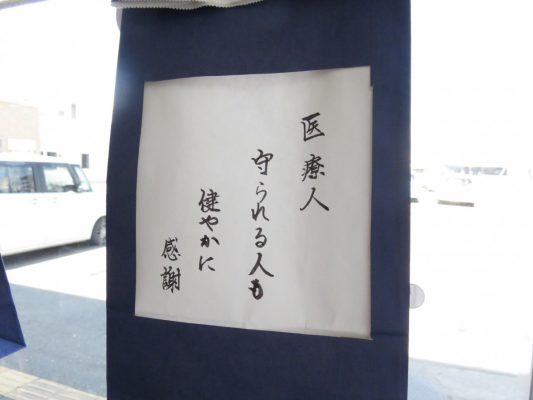 医療人
守られる人も
健やかに
感謝